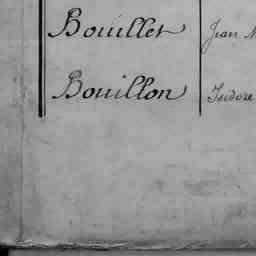 Bouillet Jean
Bouillon Isidore